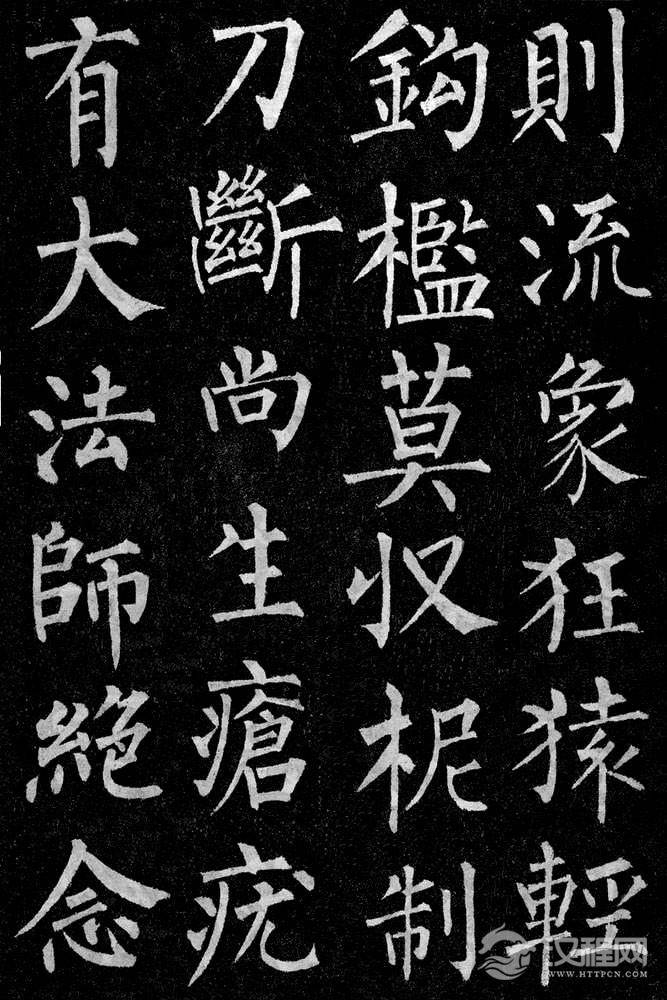 則流象狂猿輕
鈎檻莫収柅制
刀斷尚生瘡疣
有大法師絕念
汉程网
WWW.HTTPCN.COM